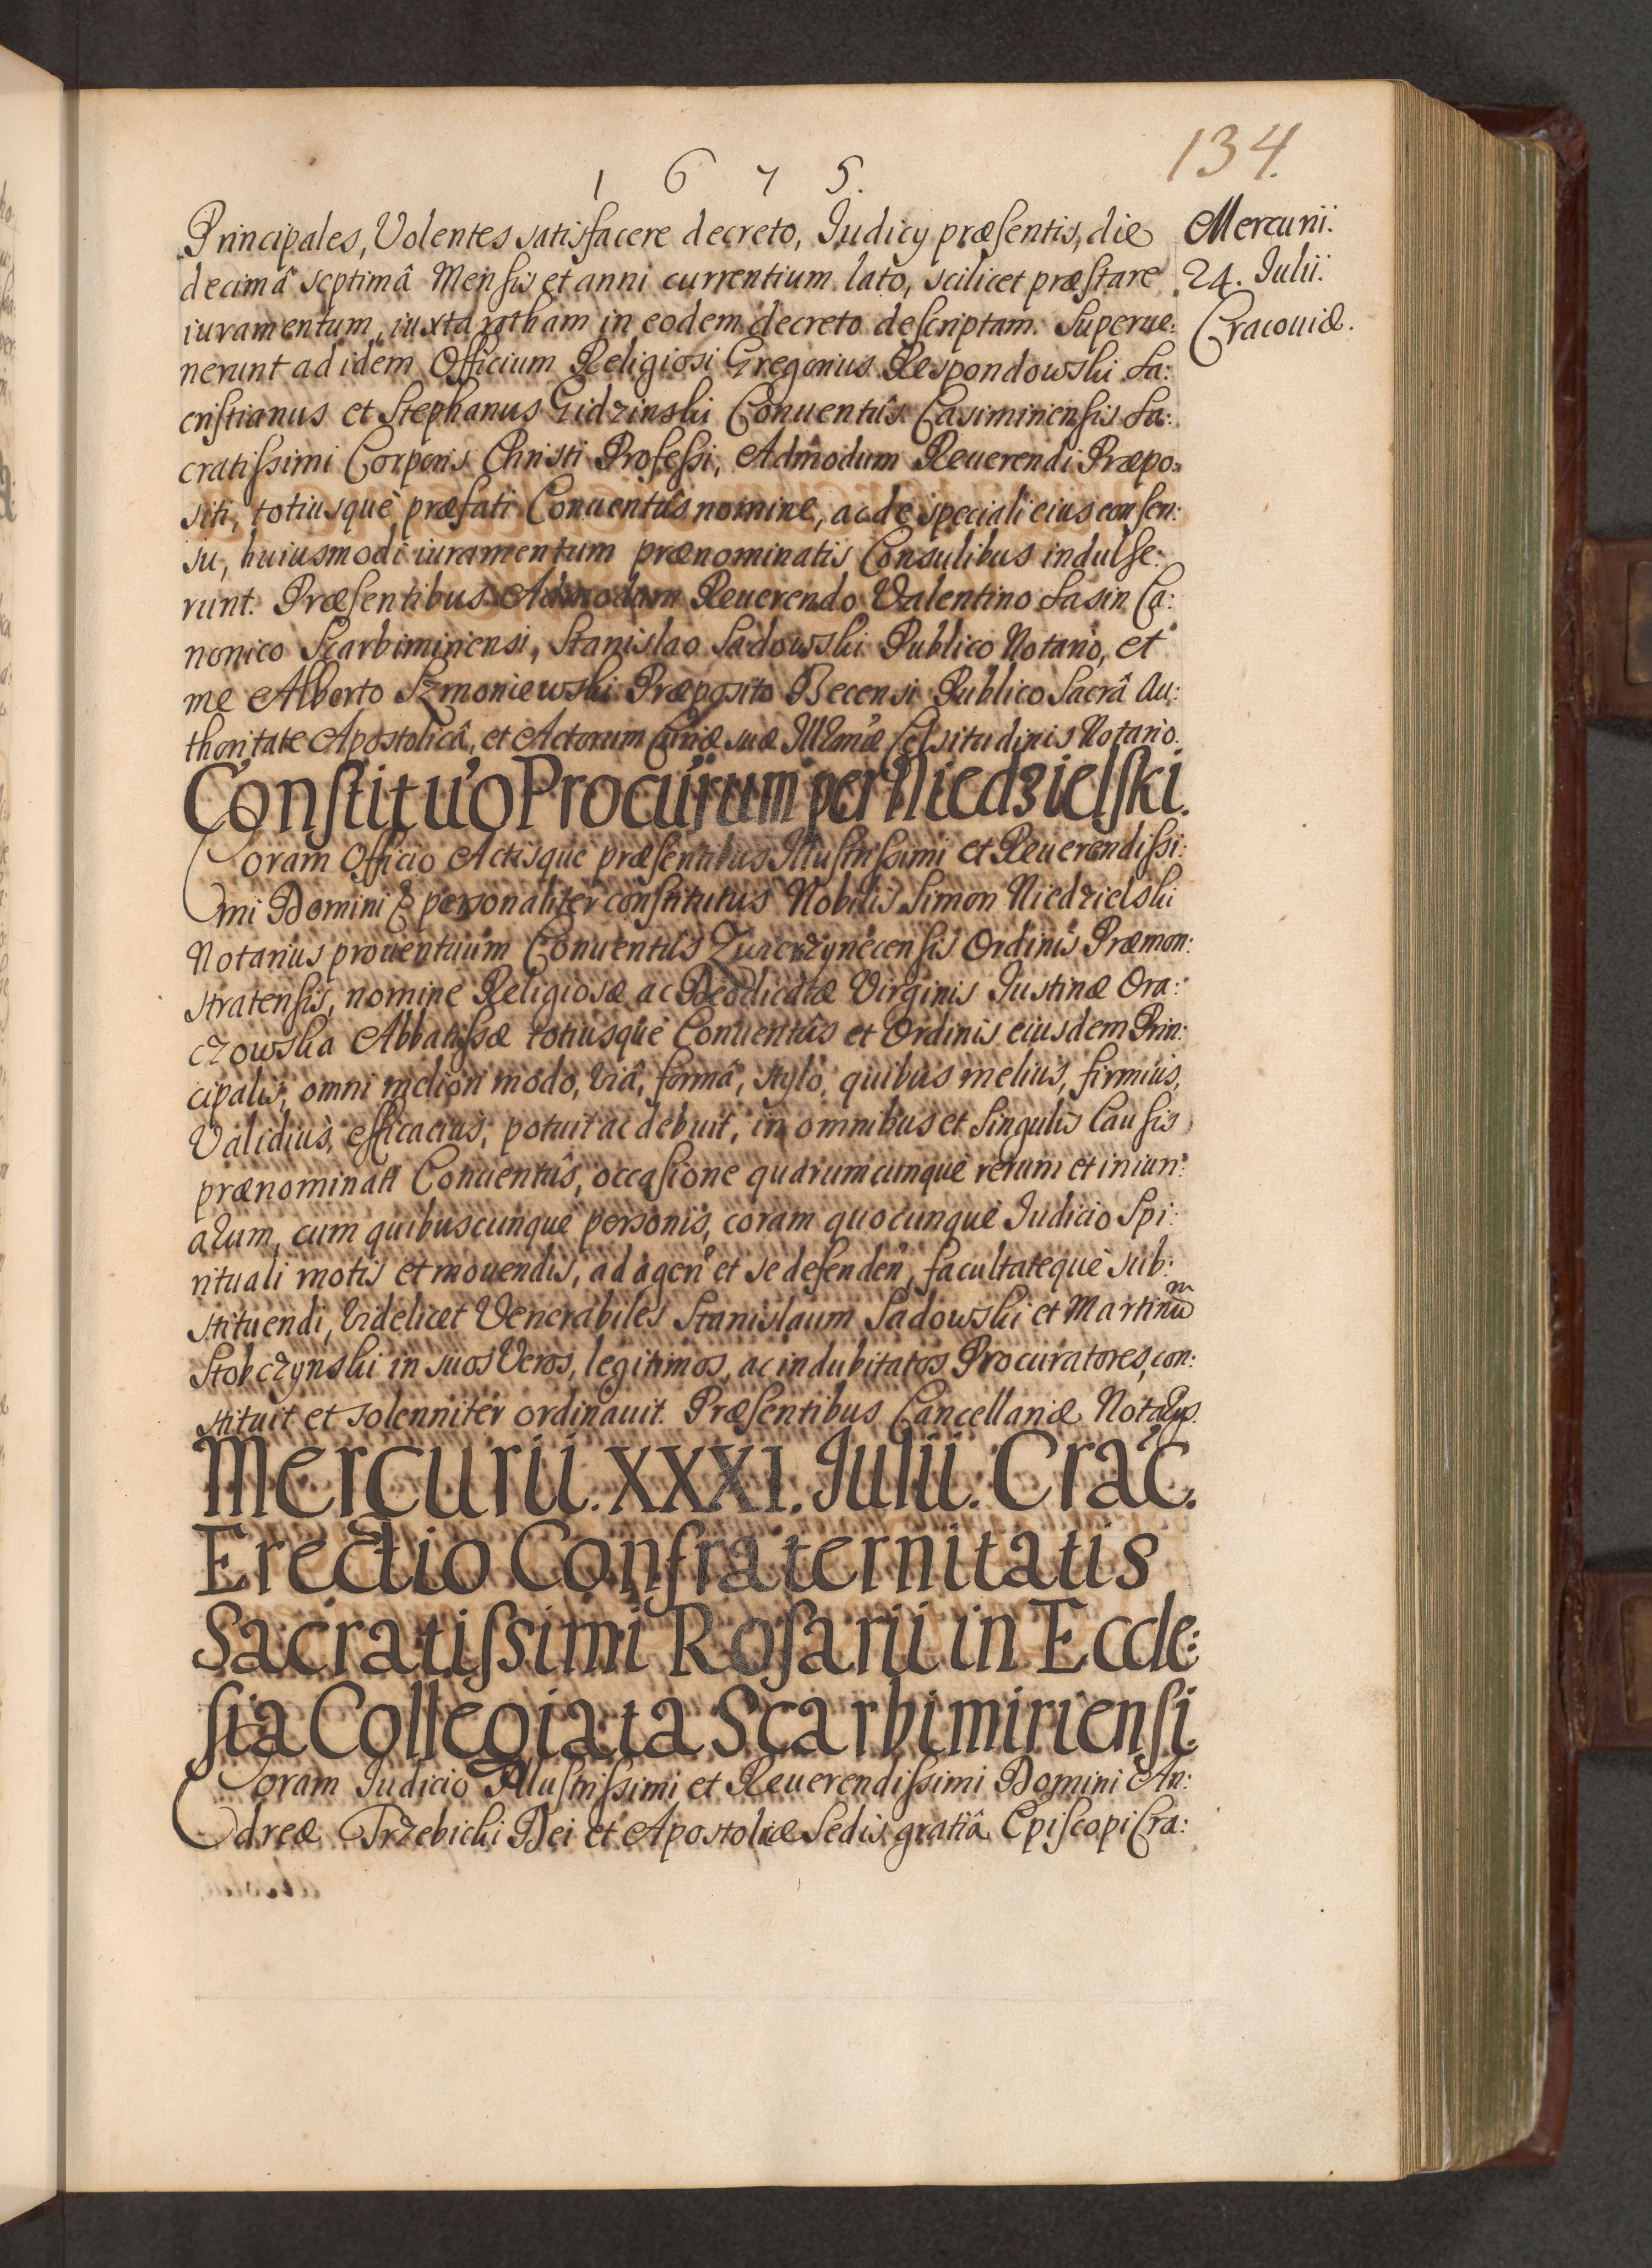 134.
1 6 7 5.
Mercurii.
24. Julii.
Cracoviæ.
Principales, Volentes satisfacere decreto, Judicy præsentis, die
decimâ septimâ Mensis et anni currentium lato, scilicet præstare
iuramentum, iuxta rotham in eodem decreto descriptam. Superue:
nerunt ad idem Officium Religiosi Gregorius Respondowski Sa:
cristianus et Stephanus Gidzinski Conuentûs Casimiriensis Sa:
cratissimi Corporis Christi Professi, Admodum Reuerendi Præpo:
siti, totiusquè præfati Conuentûs nomine, ac de speciali eius consen:
su, huiusmodi iuramentum prænominatis Consulibus indulse:
runt. Præsentibus Admodum Reuerendo Valentino Sasin Ca:
nonico Scarbimiriensi, Stanislao Sadowski Publico Notario, et
me Alberto Szmoniewski Præposito Becensi Publico Sacrâ Au:
thoritate Apostolicâ, et Actorum Curiæ suæ Illmæ Celsitudinis Notario.
Constituo Procurum per Niedzielski.
Coram Officio Actisquè præsentibus Illustrissimi et Reuerendissi:
mi Domini & personaliter constitutus Nobilis Simon Niedzielski
Notarius prouentuum Conuentûs Zwierzynecensis Ordinis Præmon:
stratensis, nomine Religiosæ ac Deodicatæ Virginis Justinæ Ora:
czowska Abbatissæ totiusquè Conuentûs et Ordinis eiusdem Prin:
cipalis, omni meliori modo, viâ, formâ, stylo, quibus meliùs, firmiùs,
Validiùs, efficaciùs, potuit ac debuit, in omnibus et singulis Causis
prænominati Conuentûs, occasione quarumcunquè rerum et iniuri:
arum, cum quibuscunquè personis, coram quocunquè Judicio Spi:
rituali motis et mouendis, ad agen et se defenden, facultatequè sub:
stituendi, videlicet Venerabiles Stanislaum Sadowski et Martinum
Stobczynski in suos Veros, legitimos, ac indubitatos Procuratores, con:
stituit et solenniter ordinauit. Præsentibus Cancellariæ Notarys.
Mercurii. XXXI. Julii. Crac.
Erectio Confraternitatis
Sacratissimi Rosarii in Eccle:
sia Collegiata Scarbimiriensi.
Coram Judicio Illustrissimi et Reuerendissimi Domini An:
dreæ Trzebicki Dei et Apostolicæ Sedis gratiâ Episcopi Cra: